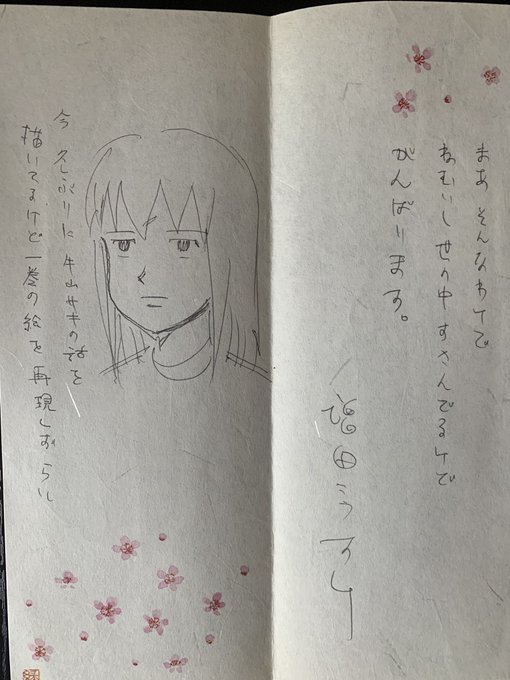 まあ そんなわけで
ねむいし 世の中すさんでるけど
がんばります。
増田こうすけ
今 久しぶりに 牛山サキの話を
描いてるけど 一巻の絵を再現しずらい